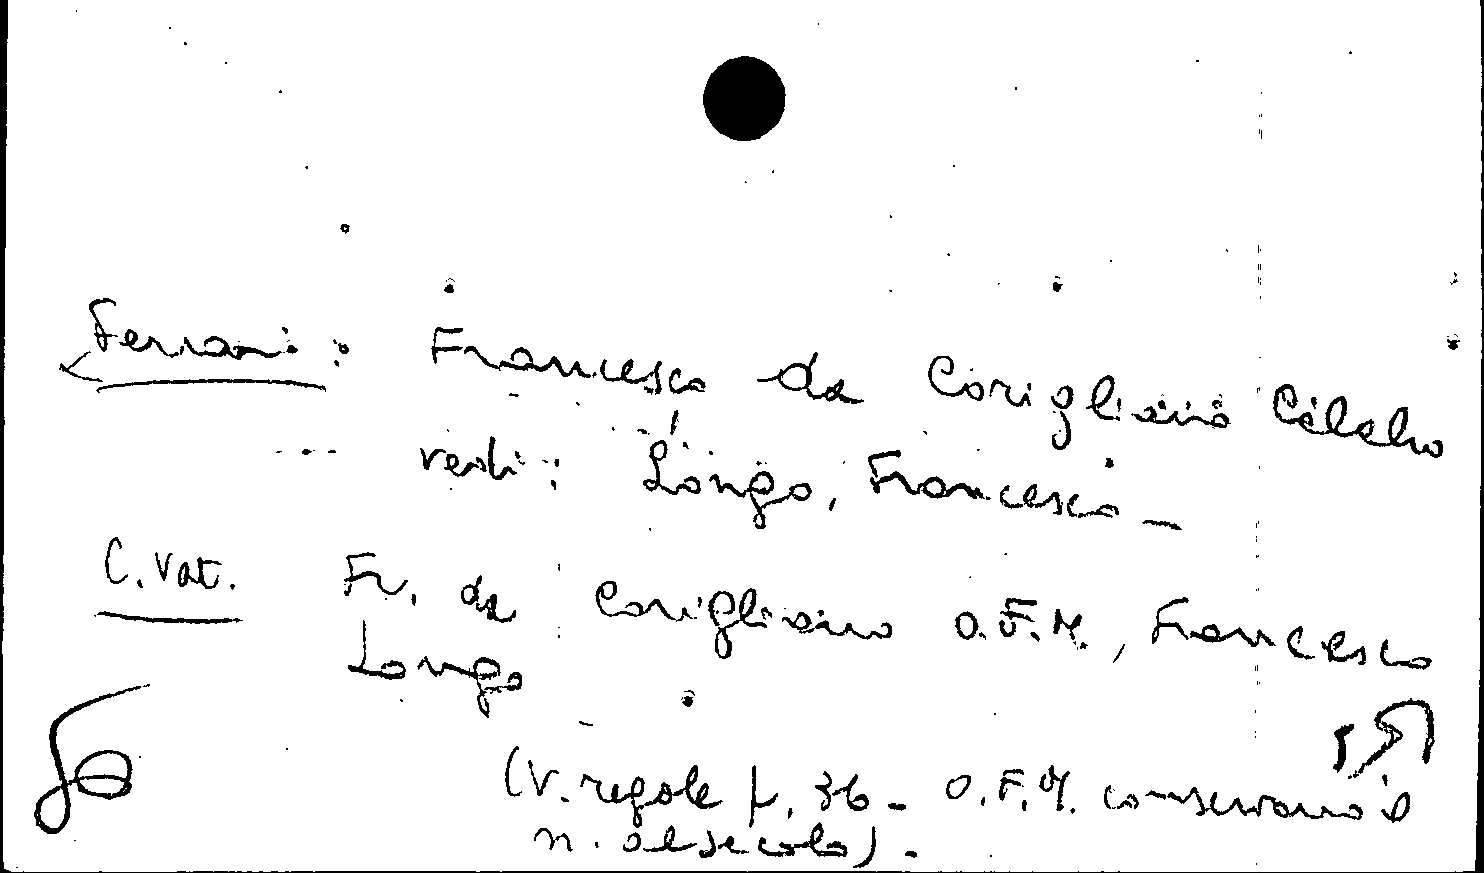 Ferrari: Francesco da Corigliano Calabro
vedi: Longo, Francesco -
C. Vat. Fr. da Corigliano O.F.M., Francesco
Longo
(V. regole p. 36 - O.F.M. conservano il
n. al secolo).